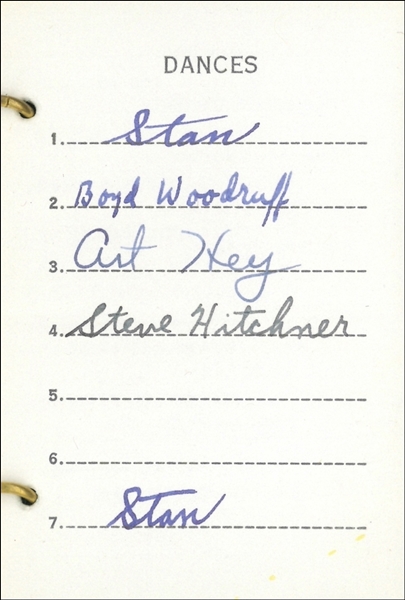 DANCES
1. Stan
2. Boyd Woodruff
3. Art Hey
4. Steve Hitchner
5.
6.
7. Stan